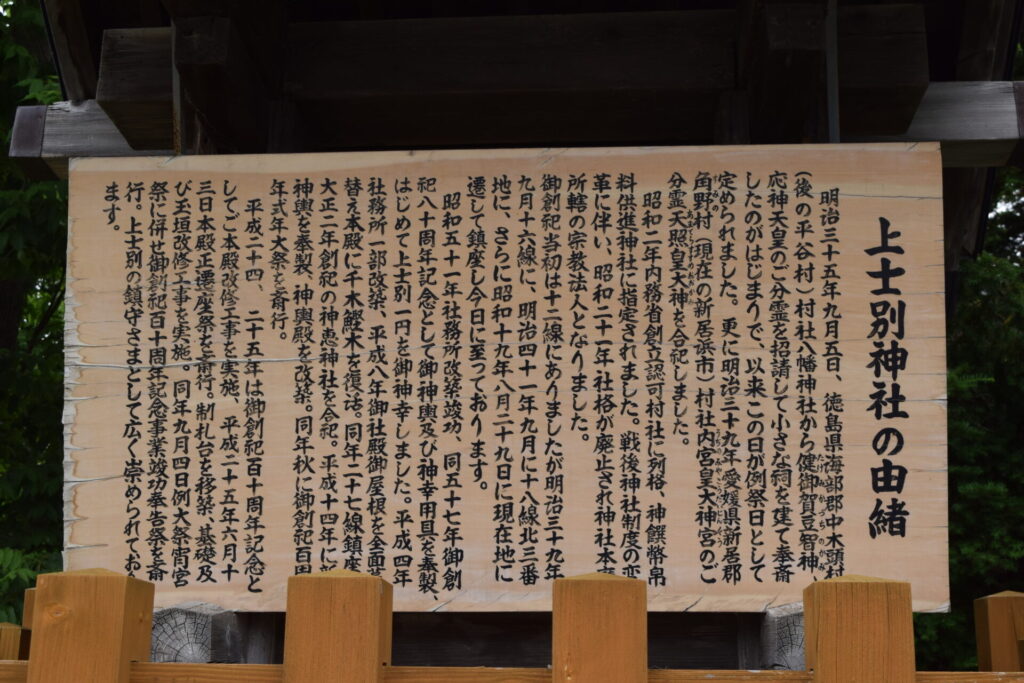 上士別神社の由緒
明治三十五年九月五日、徳島県海部郡中木頭村
(後の平谷村)村社八幡神社から健御賀豆智神、
応神天皇のご分霊を招請して小さな祠を建て奉斎
したのがはじまりで、以来この日が例祭日として
定められました。更に明治三十九年愛媛県新居郡
角野村(現在の新居浜市)村社内宮皇大神宮のご
分霊天照皇大神を合祀しました。
昭和二年内務省創立認可村社に列格、神饌幣帛
料供進神社に指定されました。戦後神社制度の変
革に伴い、昭和二十一年社格が廃止され神社本
所轄の宗教法人となりました。
御創祀当初は十二線にありましたが明治三十九年
九月十六線に、明治四十一年九月に十八線北三番
地に、さらに昭和十九年八月二十九日に現在地に
遷して鎮座し今日に至っております。
昭和五十一年社務所改築竣功、同五十七年御創
祀八十周年記念として御神輿及び神幸用具を奉製、
はじめて上士別一円を御神幸しました。平成四年
社務所一部改築、平成八年御社殿御屋根を全面
替え本殿に千木鰹木を復活。同年二十七線鎮座
大正二年創祀の神恵神社を合祀。平成十四年に
神輿を奉製、神輿殿を改築。同年秋に御創祀百
年式年大祭を斎行。
平成二十四、二十五年は御創祀百十周年記念と
してご本殿改修工事を実施、平成二十五年六月十
三日本殿正遷座祭を斎行。制札台を移築、基礎及
び玉垣改修工事を実施。同年九月四日例大祭宵宮
祭に併せ御創祀百十周年記念事業竣功奉告祭を斎
行。上士別の鎮守さまとして広く崇められており
ます。